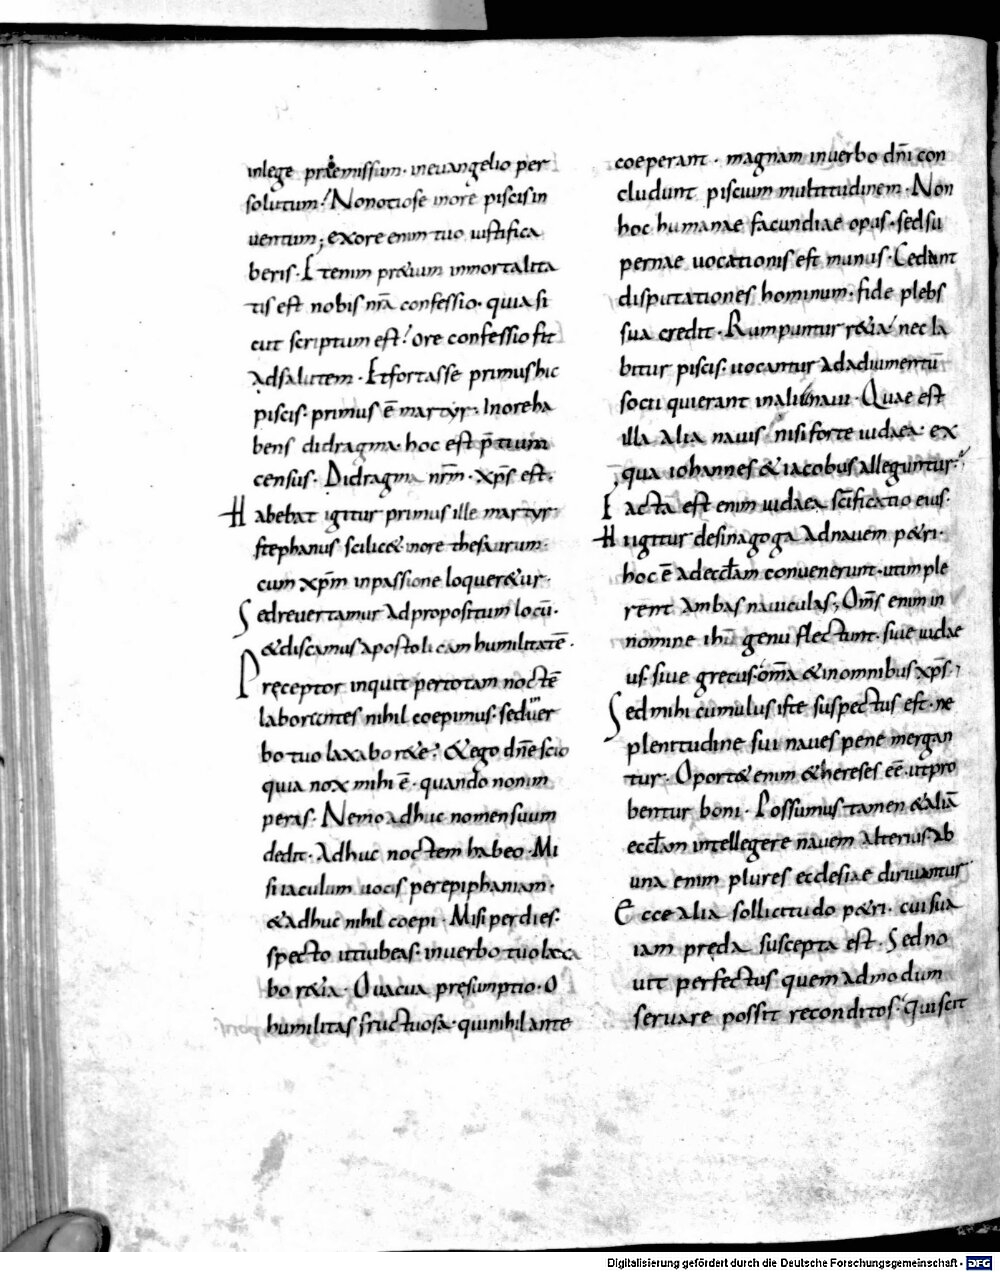 inlege praemissum · ineuangelio per
solutum? Nonotiose inore piscisin
uentum; exore enim tuo iustifica
beris · Etenim pr&ium inmortalita
tis est nobis nr̄a confessio · quia si
cut scriptum est? ore confessio fit
adsalutem · Etfortasse primushic
piscis · primus ē martyr · Inoreha
bens didragma · hoc est p̄tium
census · Didragma nr̄m · xp̄s est ·
Habebat igitur primus ille martyr
stephanus scilic& inore thesaurum ·
cum xp̄m inpassione loquer&ur ·
Sedreuertamur adpropositum locū ·
&discamus apostolicam humilitatē ·
Pręceptor inquit pertotam noctē
laborantes nihil coepimus · seduer
bo tuo laxabo r&e? &ego dn̄e scio
quia nox mihi ē · quando nonim
peras · Nemo adhuc nomen suum
dedit · Adhuc noctem habeo · Mi
si iaculum uocis perepiphaniam ·
&adhuc nihil coepi · Misi perdies ·
specto utiubeas · inuerbo tuo laxa
bo r&ia · O uacua pręsumptio · O
humilitas fructuosa · quinihil ante
coeperant · magnam inuerbo dn̄i con
cludunt piscium multitudinem · Non
hoc humanae facundiae opus · sedsu
pernae uocationis est munus · Cedunt
disputationes hominum · fide plebs
sua credit · Rumpuntur r&ia nec la
bitur piscis · uocantur adadiumentū
socii quierant inalia naui · Quae est
illa alia nauis nisi forte iudaea · ex
qua iohannes &iacobus alleguntur ·
Facta est enim iudaea scīficatio eius ·
Hi igitur desinagoga adnauem p&ri ·
hoc ē ad eccl̄am conuenerunt · utimple
rent ambas nauiculas; Om̄s enim in
nomine ih̄u genu flectunt · siue iudae
us · siue grecus · om̄a &inomnibus xp̄s ·
Sed mihi cumulus iste suspectus est · ne
plenitudine sui naues pene mergan
tur · Oport& enim &hereses eē · utpro
bentur boni · Possumus tamen &aliā
eccl̄am intellegere nauem alterius · ab
una enim plures ecclesiae diriuantur
Ecce alia sollicitudo p&ri · cui sua
iam pręda suscepta est · Sed no
uit perfectus quemadmodum
seruare possit reconditos · quiscit
Digitalisierung gefördert durch die Deutsche Forschungsgemeinschaft - DFG